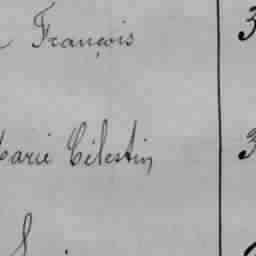 François 3
Marie Célestin 3